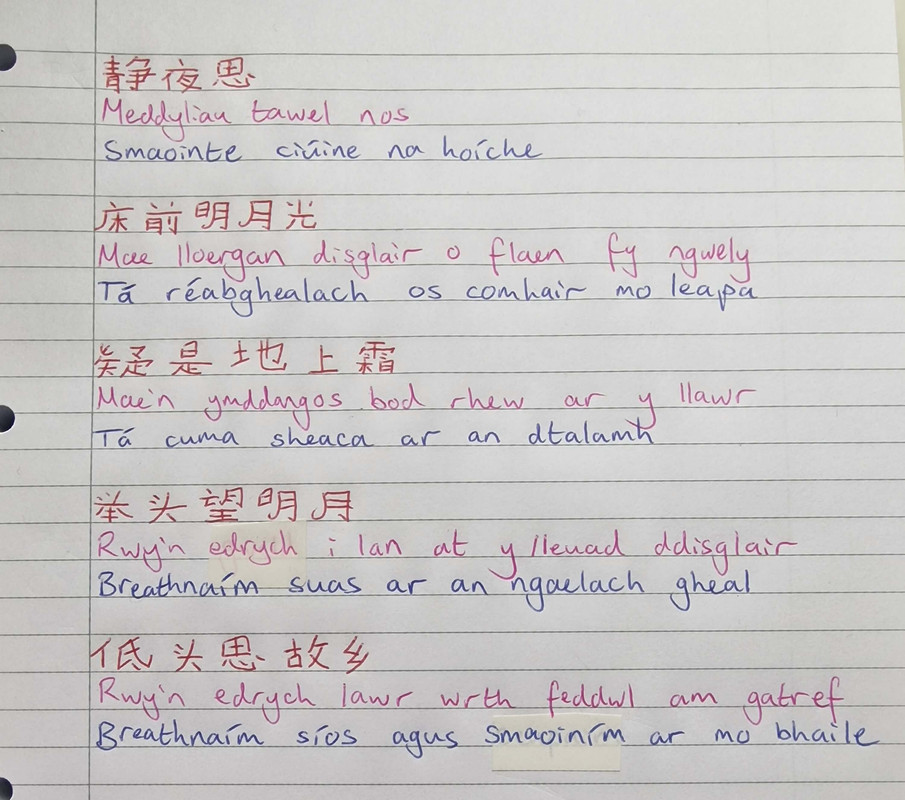 静夜思
Meddyliau tawel nos
Smaointe ciúine na hoíche
床前明月光
Mae lloergan disglair o flaen fy ngwely
Tá réabghealach os comhair mo leapa
疑是地上霜
Mae'n ymddangos bod rhew ar y llawr
Tá cuma sheaca ar an dtalamh
举头望明月
Rwy'n edrych i lan at y lleuad ddisglair
Breathnaím suas ar an ngaelach gheal
低头思故乡
Rwy'n edrych lawr wrth feddwl am gatref
Breathnaím síos agus smaoiním ar mo bhaile